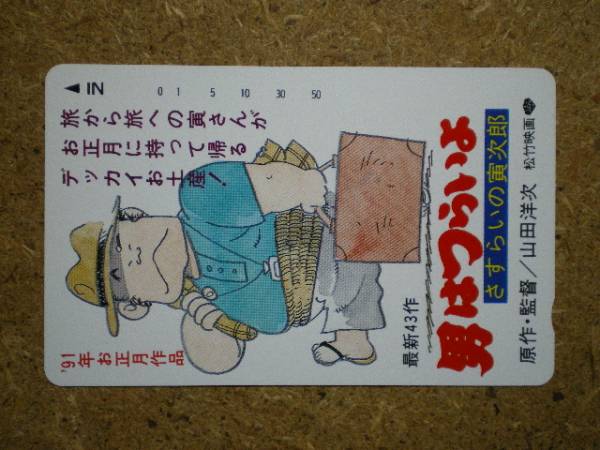 旅から旅への寅さんが
お正月に持って帰る
デッカイお土産！
'91年お正月作品
最新43作
男はつらいよ
さすらいの寅次郎
原作・監督／山田洋次
松竹映画
IN
0 1 5 10 30 50